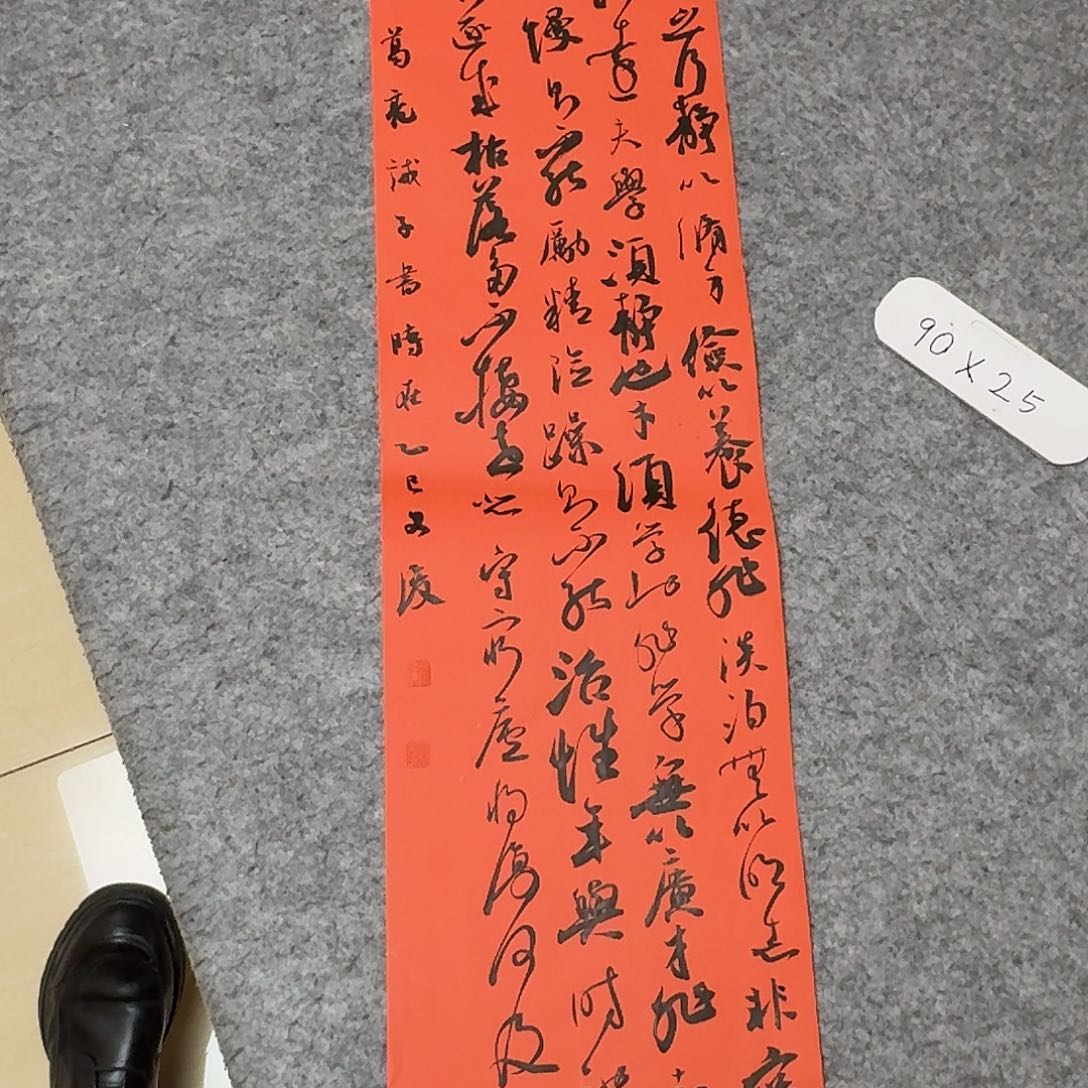 之行靜以脩身儉以養德非淡泊無以明志非
遠夫學須靜也才須學也非學無以廣才非
慢則不能勵精險躁則不能治性年與時
遂成枯落多不接世悲守窮廬將復何及
葛亮誡子書時在乙巳
90 X 25